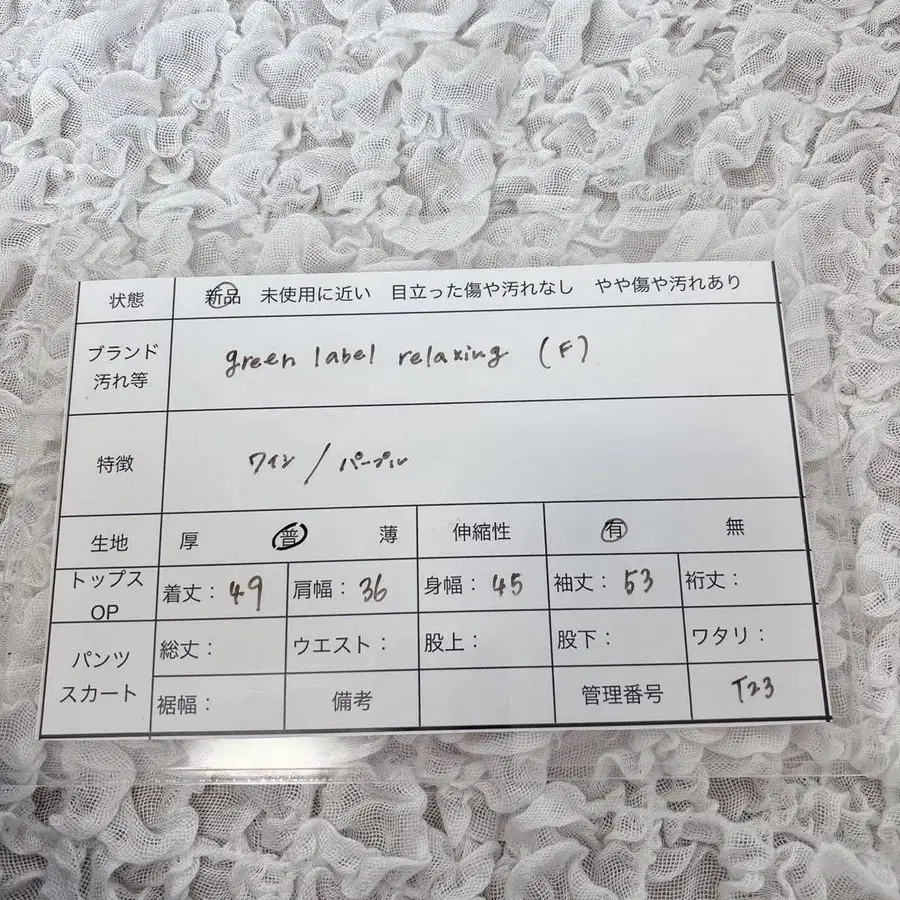 状態 新品 未使用に近い 目立った傷や汚れなし やや傷や汚れあり
ブランド
汚れ等 green label relaxing (F)
特徴 ワイン / パープル
生地 厚 普 薄 伸縮性 有 無
トップス
OP 着丈：49 肩幅：36 身幅：45 袖丈：53 裄丈：
パンツ
スカート 総丈： ウエスト： 股上： 股下： ワタリ：
裾幅： 備考 管理番号 T23